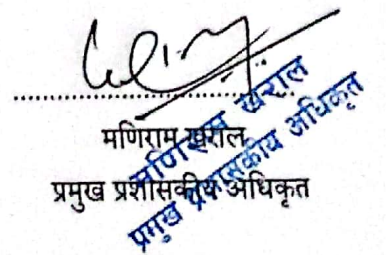 मणिराम खराल
प्रमुख प्रशासकीय अधिकृत
मणिराम खराल
प्रमुख प्रशासकीय अधिकृत